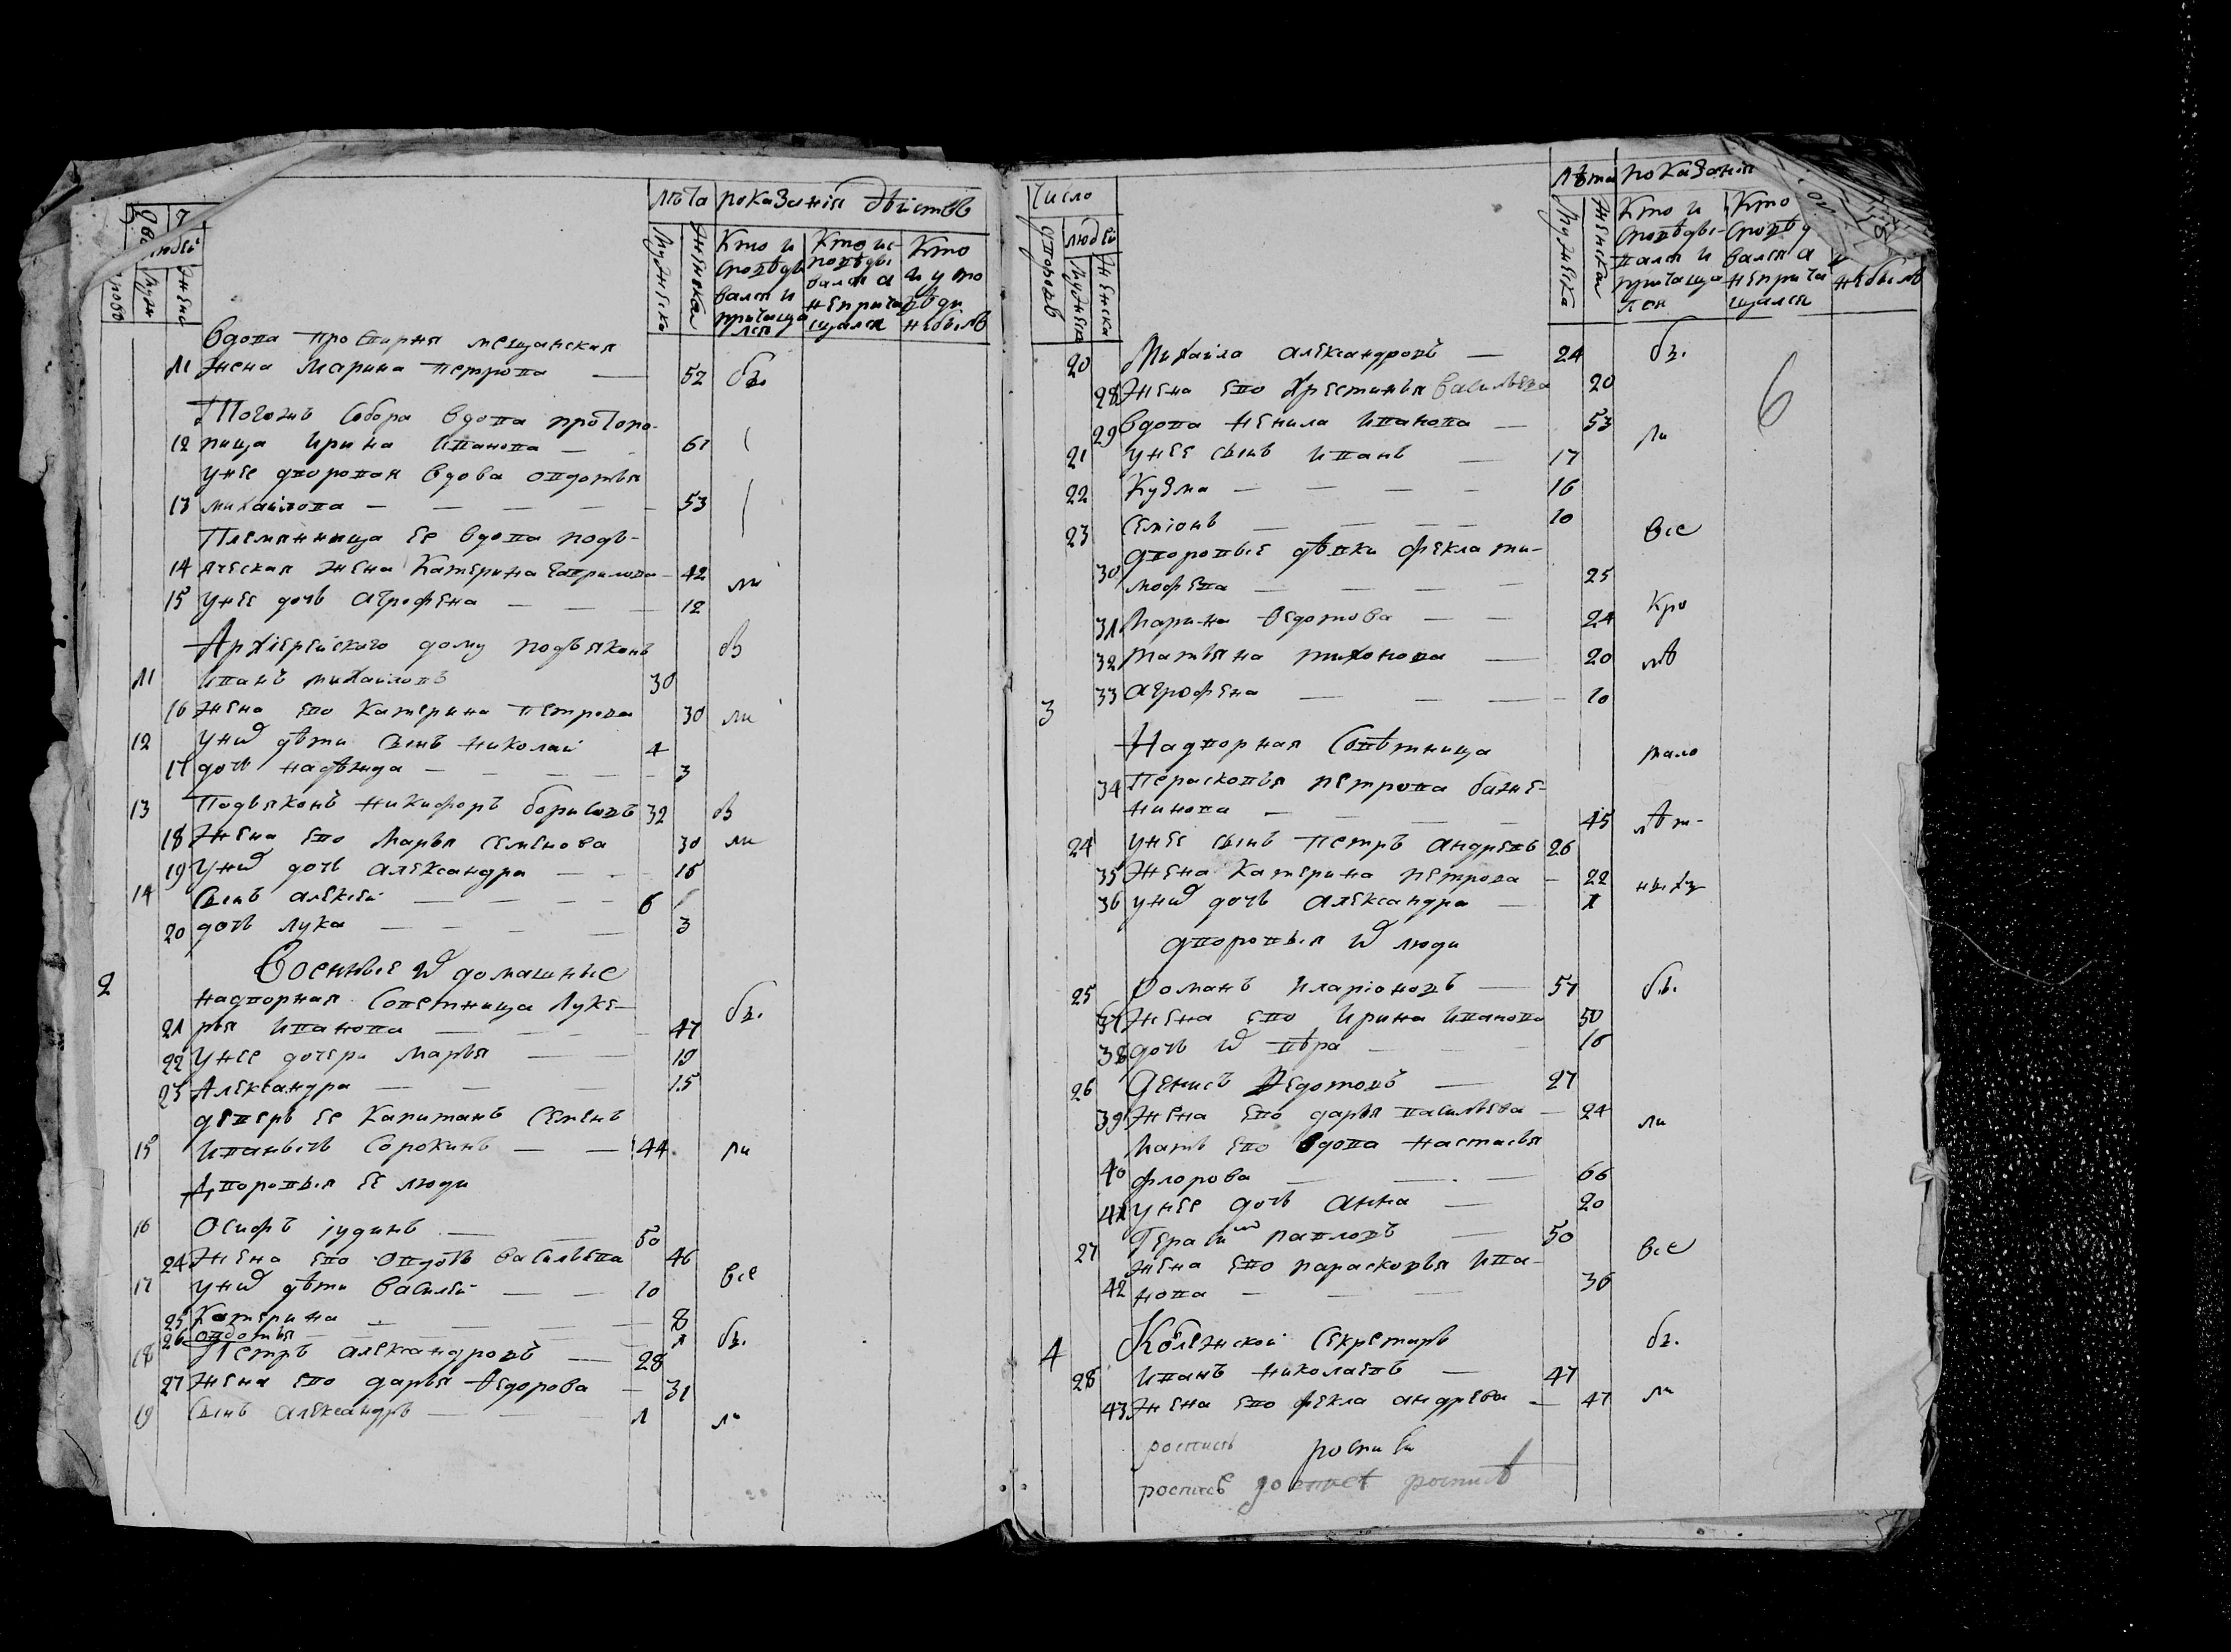 лѣта показанiя двiствъ
людей
мужеска
женска
Кто и сповѣды вался и причаща лся
Кто ис повѣды вался а неприча щался
Кто и у спо вѣди небылъ
вдова просвирня мещанская
11 жена Марина петрова — 52 бы
Тогожъ собора вдова протопо-
12 пица Ирина Иванова — 61
унее дворовая вдова овдотья
13 михаилова — — — — 53
Племянница ее вдова подь-
14 яческая жена Катерина Гаврилова — 42 ли
15 унее дочь агрофена — — — 12
Архiерейского дому подьяконъ бы
11 иванъ михаиловъ 30
16 жена ево Катерина петрова 30 ли
12 унихъ дѣти сынъ николай 4
17 дочь надѣжда — — — — 3
13 Подьяконъ никифоръ борисовъ 32 бы
18 жена ево Марья семенова 30 ли
19 унихъ дочь александра — — 15
14 сынъ алексѣй — — — — 6
20 дочь лука — — — — 3
2 Военные и домашные
надворная советница Луке-
21 рья иванова — — — 47 бы.
22 унее дочери Марья — 19
23 Александра — — — 15
деверь ее капитанъ Семенъ
15 иванычь Сорокинъ — — 44 ли
дворовыя ее люди
16 Осифъ iудинъ — — 50
24 жена ево овдотья васильева 46
17 унихъ дѣти василей — — 10 все
25 Катерина — — — — 8
26 овдотья — — — 1
18 Петръ александровъ — 28 бы.
27 жена ево дарья ѳедорова — 31
19 сынъ александръ — — — 1 ли
Число
дворовъ
людей
мужеска
женска
лѣта показанiя
мужеска
женска
Кто и сповѣды- вался и причаща лся
Кто сповѣд вался а неприча щался
небылъ
20 Михаила александровъ — 24 бы.
6
28 жена ево Христинья васильева 20
29 вдова ненила иванова — 53 ли
21 унее сынъ иванъ — 17
22 Кузма — — — — 16
23 семiонъ — — — — 10
дворовые дѣвки фекла ти- все
30 мофѣва — — — — 25
31 Марина ѳедотова — — 24 кро
32 татьяна тихонова — 20 мѣ
33 агрофена — — — — 10
3 Надворная совѣтница мало
34 Перасковья петрова баже-
нинова — — — — 45 лѣт-
24 унее сынъ петръ андрѣевъ 26
35 жена Катерина петрова — 22 ныхъ
36 унихъ дочь александра — 1
дворовыя ихъ люди
25 Романъ иларiоновъ — 57 бы.
37 жена ево Ирина иванова 50
38 дочь ихъ вѣра — — — 16
26 Денисъ ѳедотовъ — 27
39 жена ево дарья васильева — 24 ли
мать ево вдова настасья
40 флорова — — — 66
41 унее дочь анна — 20
27 Герасимъ павловъ — 50 все
жена ево парасковья ива-
42 нова — — — 36
4 Колежской секретарь бы.
28 иванъ николаевъ — 47
43 жена ево фекла андрѣева — 47 ли
роспись
роспись